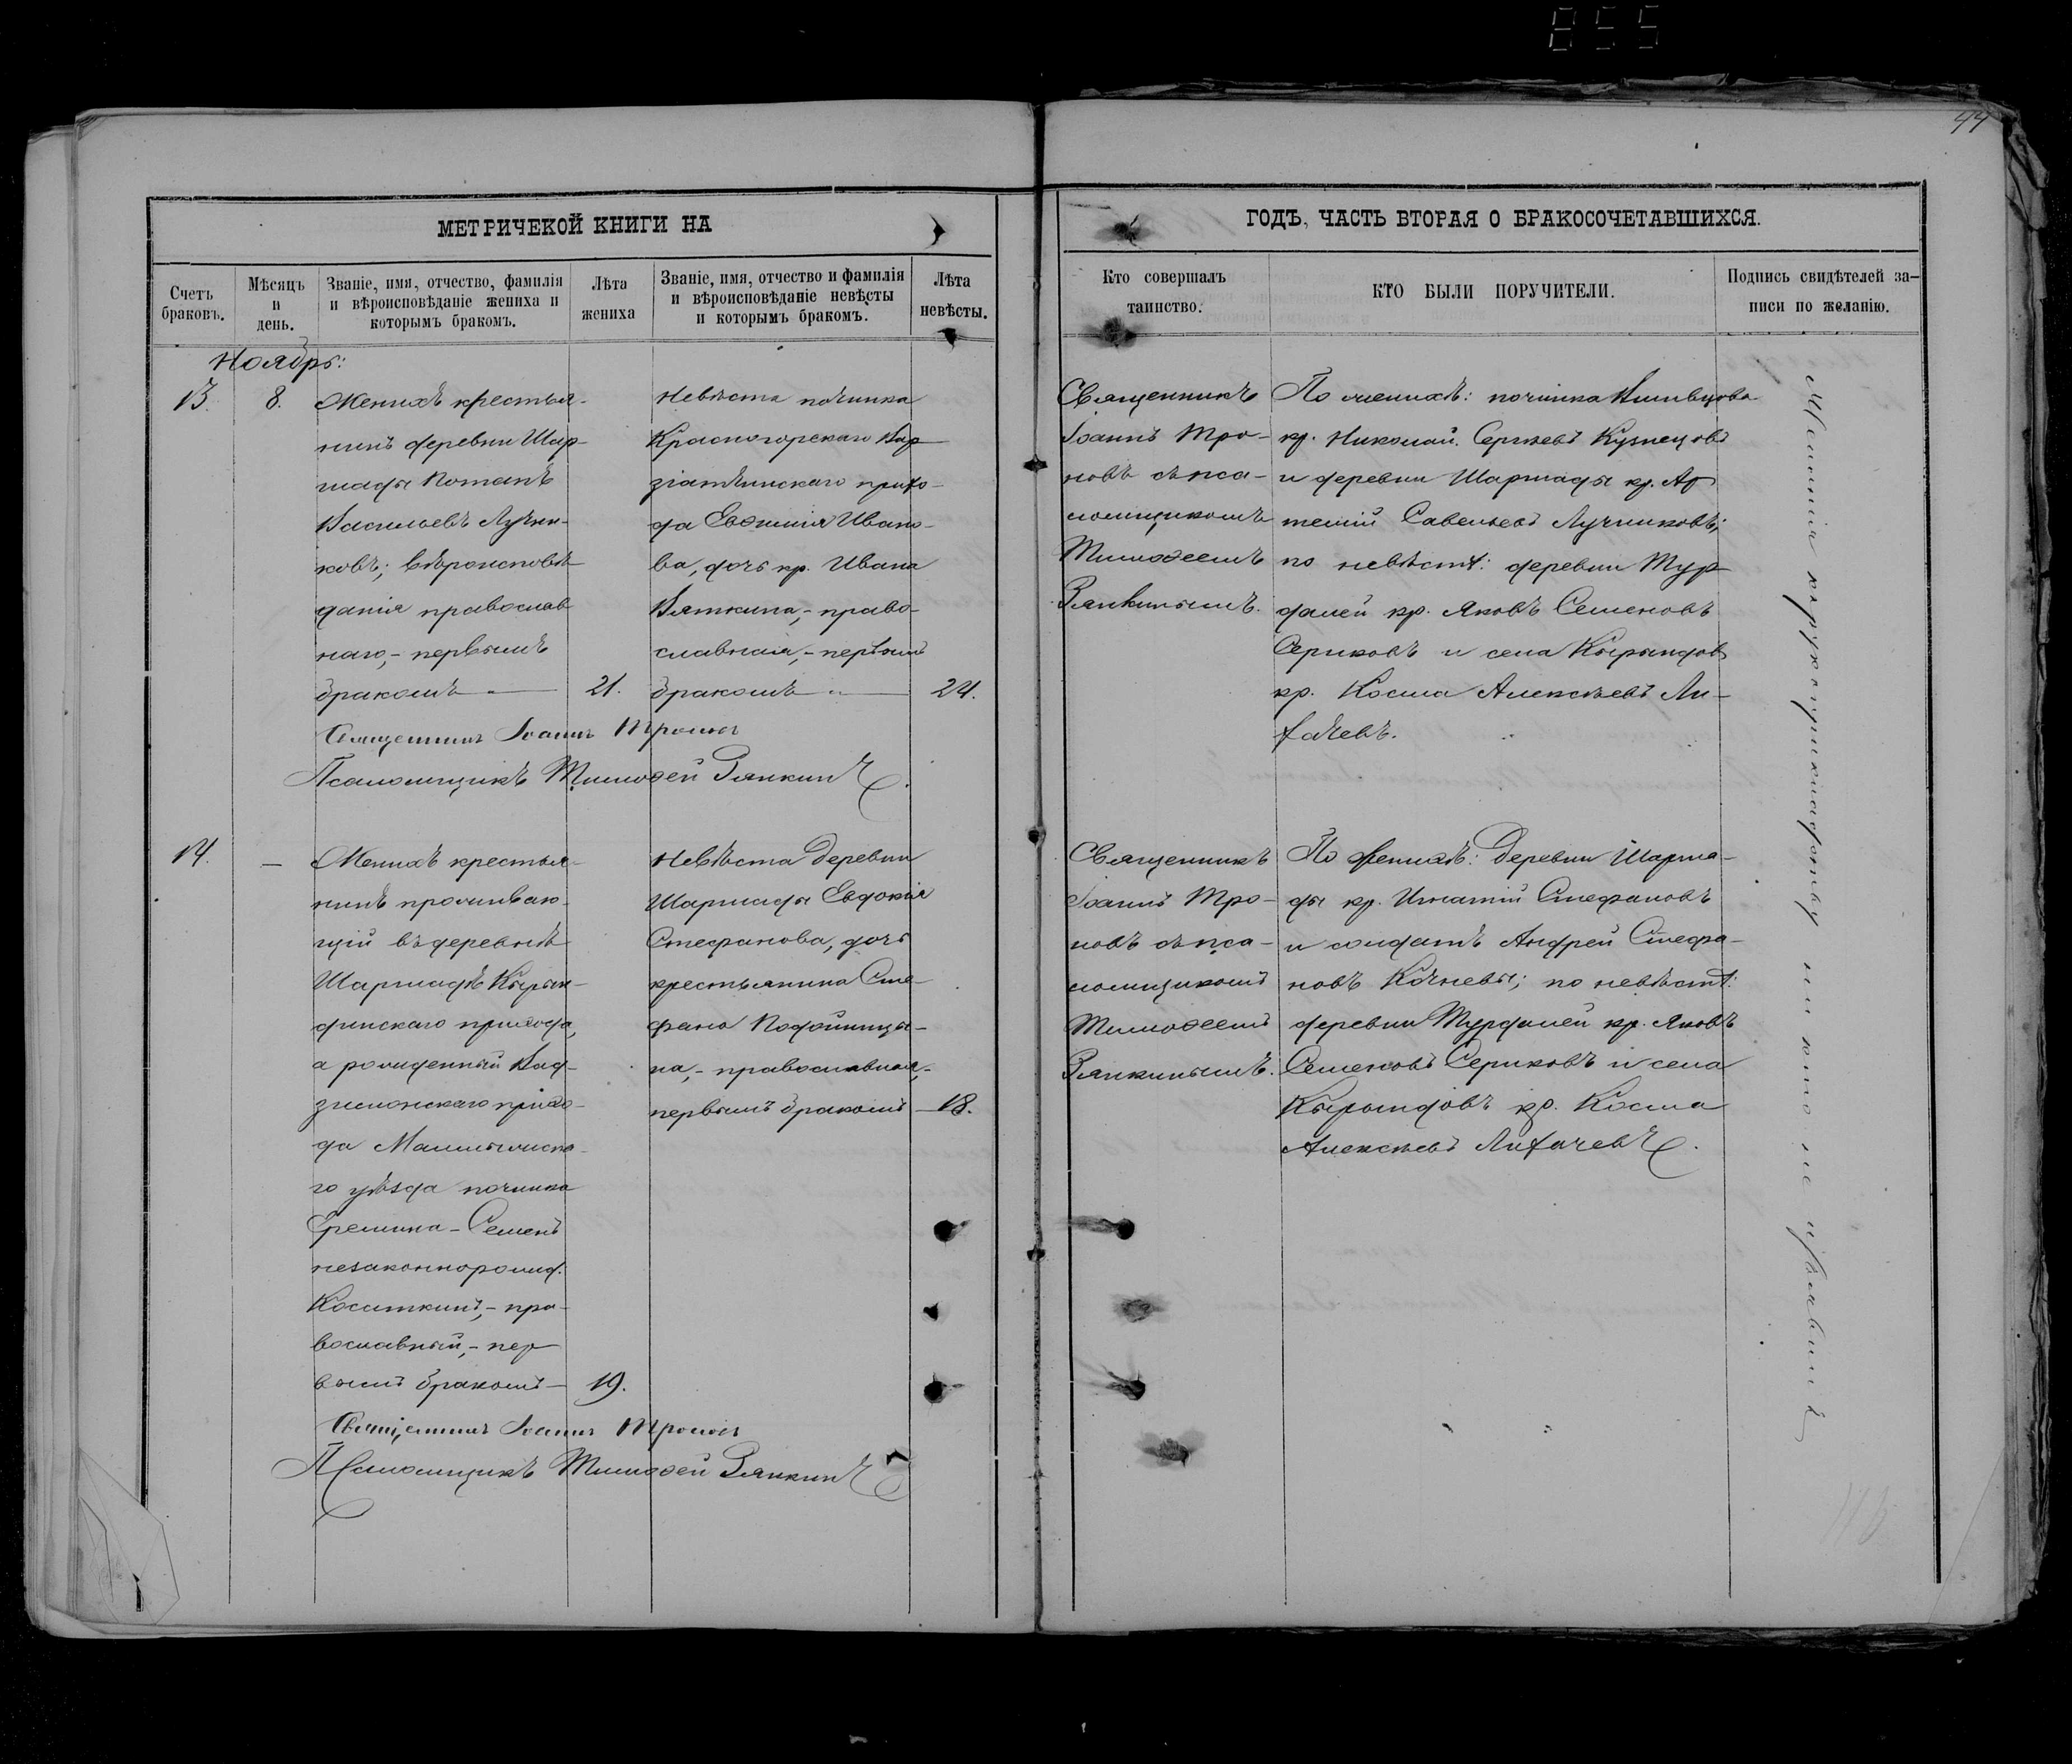 855
44
МЕТРИЧЕКОЙ КНИГИ НА
ГОДЪ, ЧАСТЬ ВТОРАЯ О БРАКОСОЧЕТАВШИХСЯ.
Счетъ браковъ.
Мѣсяцъ и день.
Званіе, имя, отчество, фамилія и вѣроисповѣданіе жениха и которымъ бракомъ.
Лѣта жениха
Званіе, имя, отчество и фамилія и вѣроисповѣданіе невѣсты и которымъ бракомъ.
Лѣта невѣсты.
Кто совершалъ таинство.
КТО БЫЛИ ПОРУЧИТЕЛИ.
Подпись свидѣтелей записи по желанію.
Ноябрь:
13.
8.
Женихъ крестья-
нинъ деревни Шар-
Потапъ
Васильевъ Лучни-
ковъ; вѣроисповѣ-
данія православ-
наго,- первымъ
бракомъ
21.
Невѣста починка
Красногорскаго
прихо-
да Евѳимія Ивано-
ва, дочь кр. Ивана
Вяткина,- право-
славная,- первымъ
бракомъ
24.
Священникъ Іоаннъ Троновъ
Псаломщикъ Тимоѳей Рянкинъ
Священникъ
Іоаннъ Тро-
новъ съ пса-
ломщикомъ
Тимоѳеемъ
Рянкинымъ.
По женихѣ: починка
кр. Николай Сергѣевъ Кузнецовъ
и деревни Шармады кр. Ар
темій Савельевъ Лучниковъ;
по невѣстѣ: деревни Тур-
далей кр. Яковъ Семеновъ
Сериковъ и села Кырындовъ
кр. Косма Алексѣевъ Ли-
хачевъ.
14.
Женихъ крестья-
нинъ проживаю-
щій въ деревнѣ
Шармадѣ Кырын-
динскаго прихода,
а рожденный
прихо-
да Малмыжска-
го уѣзда починка
Еремина - Семенъ
незаконнорожд.
Коситкинъ,- пра-
вославный,- пер
вымъ бракомъ
19.
Невѣста деревни
Шармады Евдокія
Стефанова, дочь
крестьянина Сте-
фана Подойницы-
на,- православная,
первымъ бракомъ
18.
Священникъ Іоаннъ Троновъ
Псаломщикъ Тимоѳей Рянкинъ
Священникъ
Іоаннъ Тро-
новъ съ пса-
ломщикомъ
Тимоѳеемъ
Рянкинымъ.
По женихѣ: деревни Шарма-
ды кр. Игнатій Стефановъ
и солдатъ Андрей Стефа-
новъ Кочневы; по невѣстѣ:
деревни Турдалей кр. Яковъ
Семеновъ Сериковъ и села
Кырындовъ кр. Косма
Алексѣевъ Лихачевъ.
Желанія къ рукоприкладству ни кто не изъявилъ